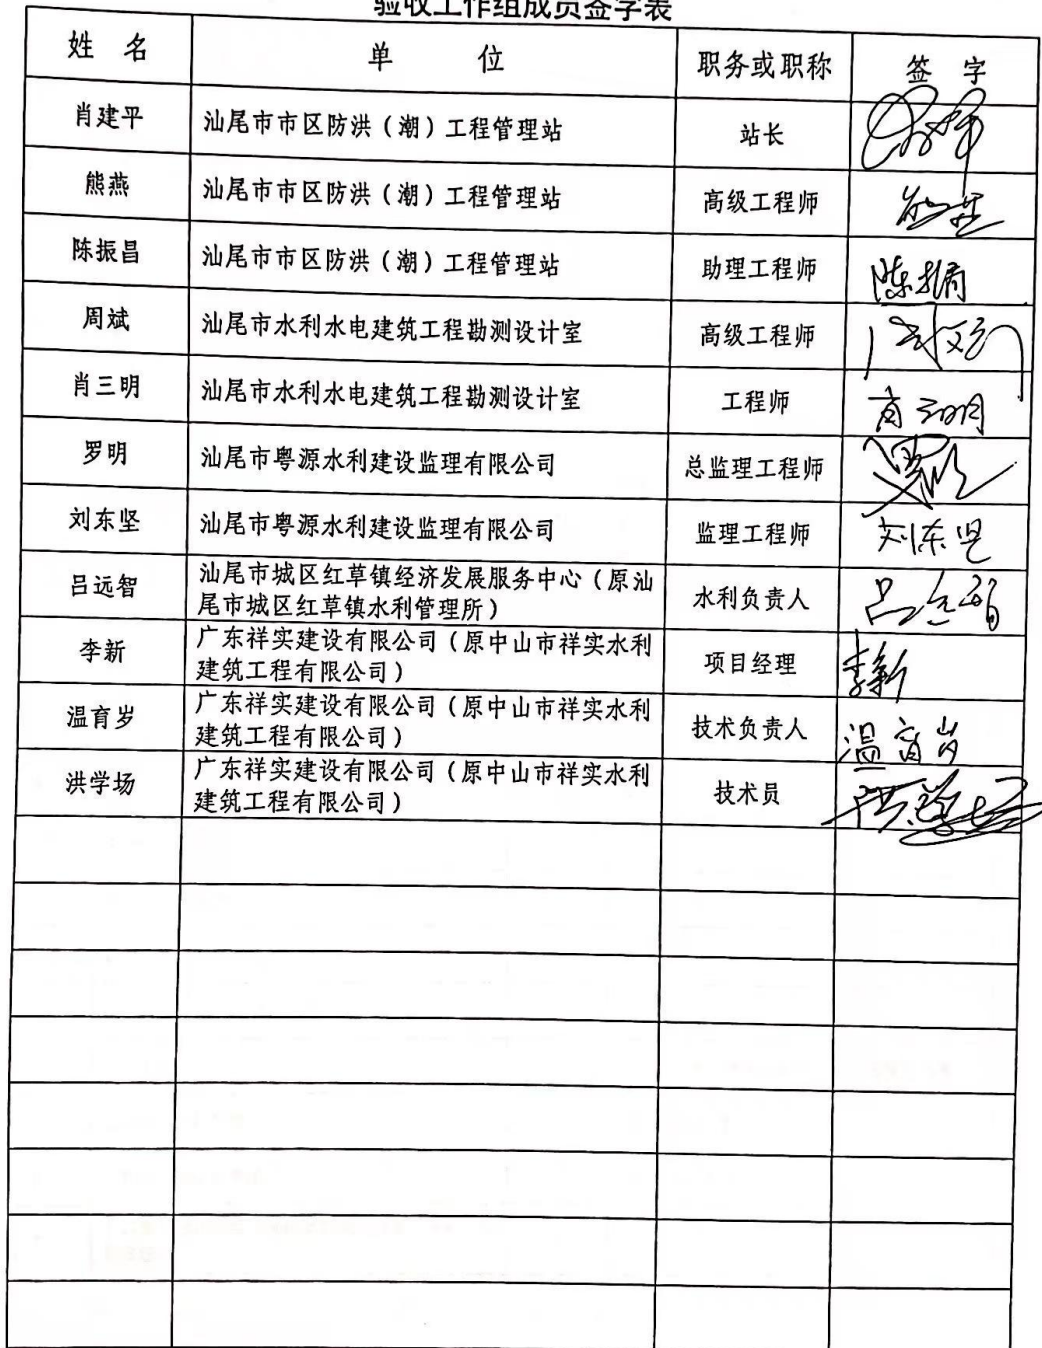 验收工作组成员签字表
姓 名 单 位 职务或职称 签 字
肖建平 汕尾市市区防洪（潮）工程管理站 站长
熊燕 汕尾市市区防洪（潮）工程管理站 高级工程师
陈振昌 汕尾市市区防洪（潮）工程管理站 助理工程师
周斌 汕尾市水利水电建筑工程勘测设计室 高级工程师
肖三明 汕尾市水利水电建筑工程勘测设计室 工程师
罗明 汕尾市粤源水利建设监理有限公司 总监理工程师
刘东坚 汕尾市粤源水利建设监理有限公司 监理工程师 刘东坚
吕远智 汕尾市城区红草镇经济发展服务中心（原汕
尾市城区红草镇水利管理所） 水利负责人
李新 广东祥实建设有限公司（原中山市祥实水利
建筑工程有限公司） 项目经理 李新
温育岁 广东祥实建设有限公司（原中山市祥实水利
建筑工程有限公司） 技术负责人 温育岁
洪学场 广东祥实建设有限公司（原中山市祥实水利
建筑工程有限公司） 技术员